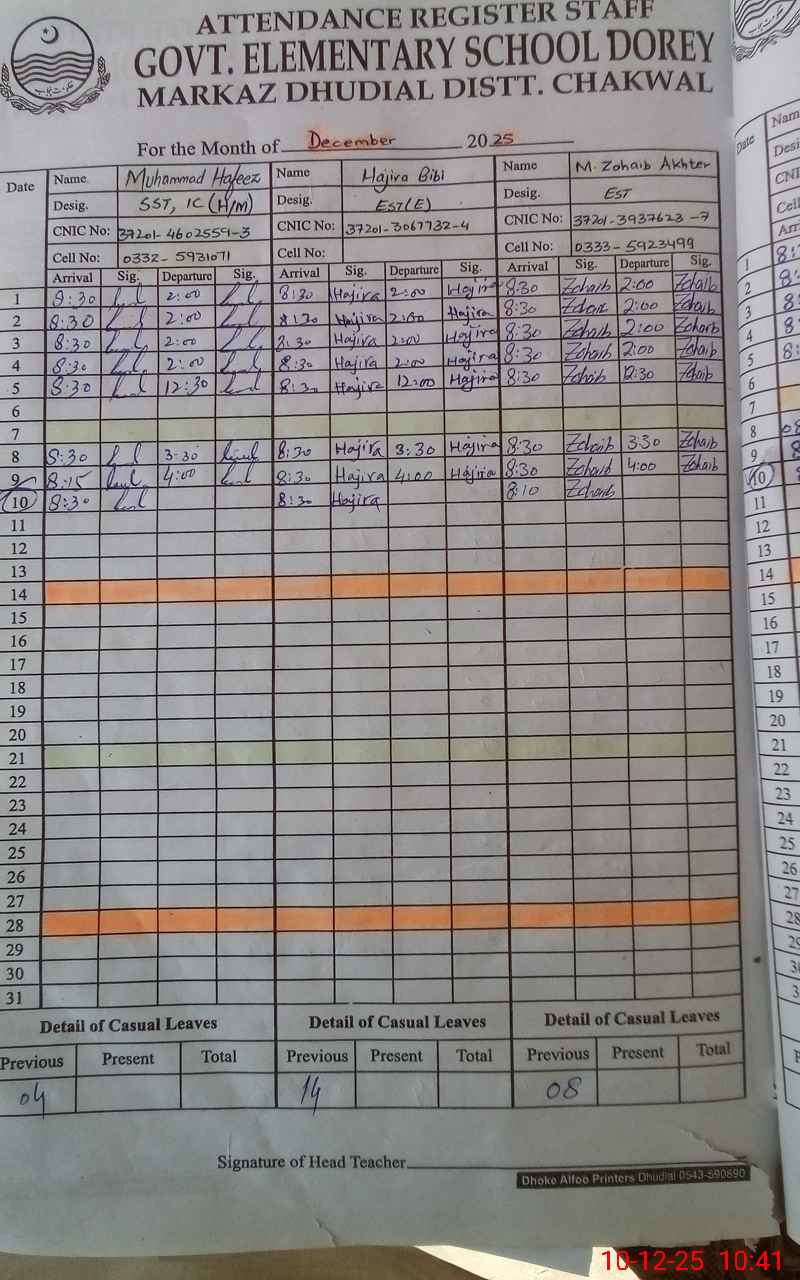 ATTENDANCE REGISTER STAFF
GOVT. ELEMENTARY SCHOOL DOREY
MARKAZ DHUDIAL DISTT. CHAKWAL
For the Month of December 2025
Date Name Muhammad Hafeez Name Hajira Bibi Name M. Zohaib Akhter
Desig. SST, IC (H/M) Desig. EST(E) Desig. EST
CNIC No: 37201-4602559-3 CNIC No: 37201-3067732-4 CNIC No: 37201-3937623-7
Cell No: 0332-5931071 Cell No: Cell No: 0333-5923499
Arrival Sig. Departure Sig. Arrival Sig. Departure Sig. Arrival Sig. Departure Sig.
1 8:30 2:00 8:30 Hajira 2:00 Hajira 8:30 Zohaib 2:00 Zohaib
2 8:30 2:00 8:30 Hajira 2:00 Hajira 8:30 Zohaib 2:00 Zohaib
3 8:30 2:00 8:30 Hajira 2:00 Hajira 8:30 Zohaib 2:00 Zohaib
4 8:30 2:00 8:30 Hajira 2:00 Hajira 8:30 Zohaib 2:00 Zohaib
5 8:30 12:30 8:30 Hajira 12:00 Hajira 8:30 Zohaib 12:30 Zohaib
6
7
8 8:30 3:30 8:30 Hajira 3:30 Hajira 8:30 Zohaib 3:30 Zohaib
9 8:15 4:00 8:30 Hajira 4:00 Hajira 8:30 Zohaib 4:00 Zohaib
10 8:30 8:30 Hajira 8:10 Zohaib
11
12
13
14
15
16
17
18
19
20
21
22
23
24
25
26
27
28
29
30
31
Detail of Casual Leaves Detail of Casual Leaves Detail of Casual Leaves
Previous Present Total Previous Present Total Previous Present Total
04 14 08
Signature of Head Teacher
Dhoke Alfoo Printers Dhudial 0543-590690
10-12-25 10:41
Date
1
2
3
4
5
6
7
8
9
10
11
12
13
14
15
16
17
18
19
20
21
22
23
24
25
26
27
28